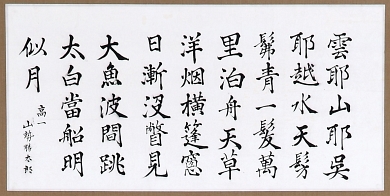 雲耶山耶吳
耶越水天髣
髴青一髮萬
里泊舟天草
洋烟橫篷窓
日漸没瞥見
大魚波間跳
太白當船明
似月
高一
山